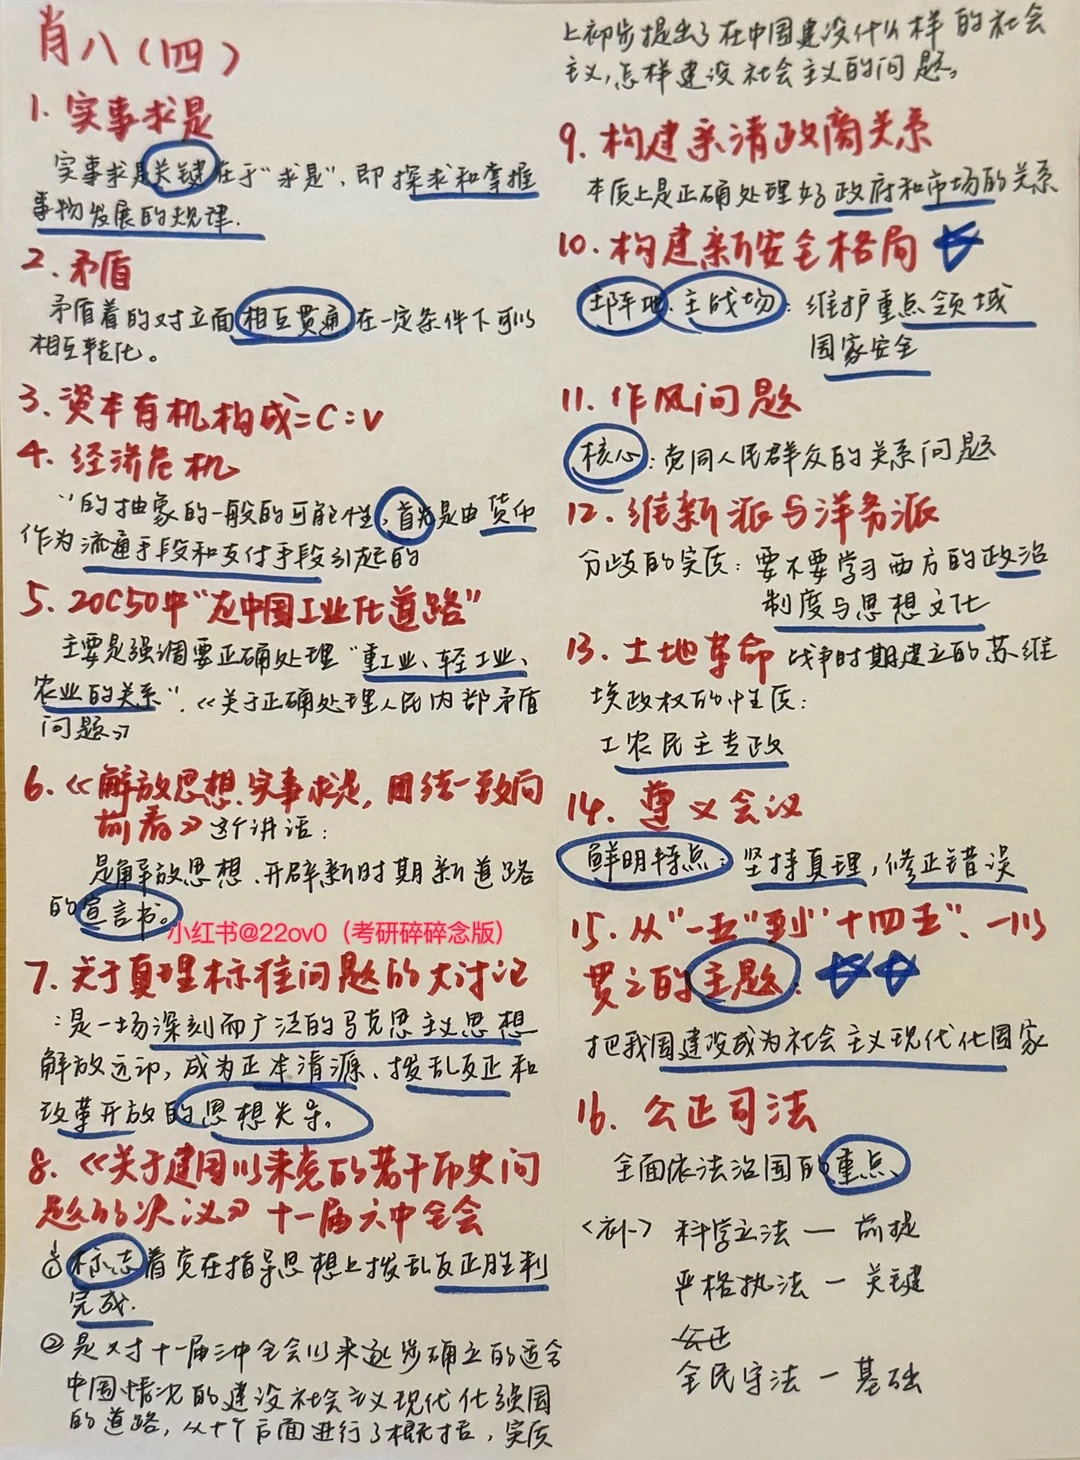 肖八(四)
1. 实事求是
实事求是关键在于“求是”，即探求和掌握
事物发展的规律.
2. 矛盾
矛盾着的对立面相互贯通，在一定条件下可以
相互转化。
3. 资本有机构成=C:V
4. 经济危机
''的抽象的一般的可能性，首先是由货币
作为流通手段和支付手段引起的
5. 20C50年“在中国工业化道路”
主要是强调要正确处理“重工业、轻工业、
农业的关系”.《关于正确处理人民内部矛盾
问题》
6.《解放思想、实事求是，团结一致向
前看》这个讲话：
是解放思想、开辟新时期新道路
的宣言书。
小红书@22ov0（考研碎碎念版）
7. 关于真理标准问题的大讨论
：是一场深刻而广泛的马克思主义思想
解放运动，成为正本清源、拨乱反正和
改革开放的思想先导。
8.《关于建国以来党的若干历史问
题的决议》十一届六中全会
①标志着党在指导思想上拨乱反正胜利
完成.
②是对十一届三中全会以来逐步确立的适合
中国情况的建设社会主义现代化强国
的道路，从十个方面进行了概括，实质
上初步提出了在中国建设什么样的社会
主义，怎样建设社会主义的问题。
9. 构建亲清政商关系
本质上是正确处理好政府和市场的关系
10. 构建新安全格局
主阵地、主战场：维护重点领域
国家安全
11. 作风问题
核心：党同人民群众的关系问题
12. 维新派与洋务派
分歧的实质：要不要学习西方的政治
制度与思想文化
13. 土地革命战争时期建立的苏维
埃政权的性质：
工农民主专政
14. 遵义会议
鲜明特点：坚持真理，修正错误
15. 从“一五”到“十四五”、一以
贯之的主题：
把我国建设成为社会主义现代化国家
16. 公正司法
全面依法治国的重点
<补> 科学立法 — 前提
严格执法 — 关键
公正
全民守法 — 基础